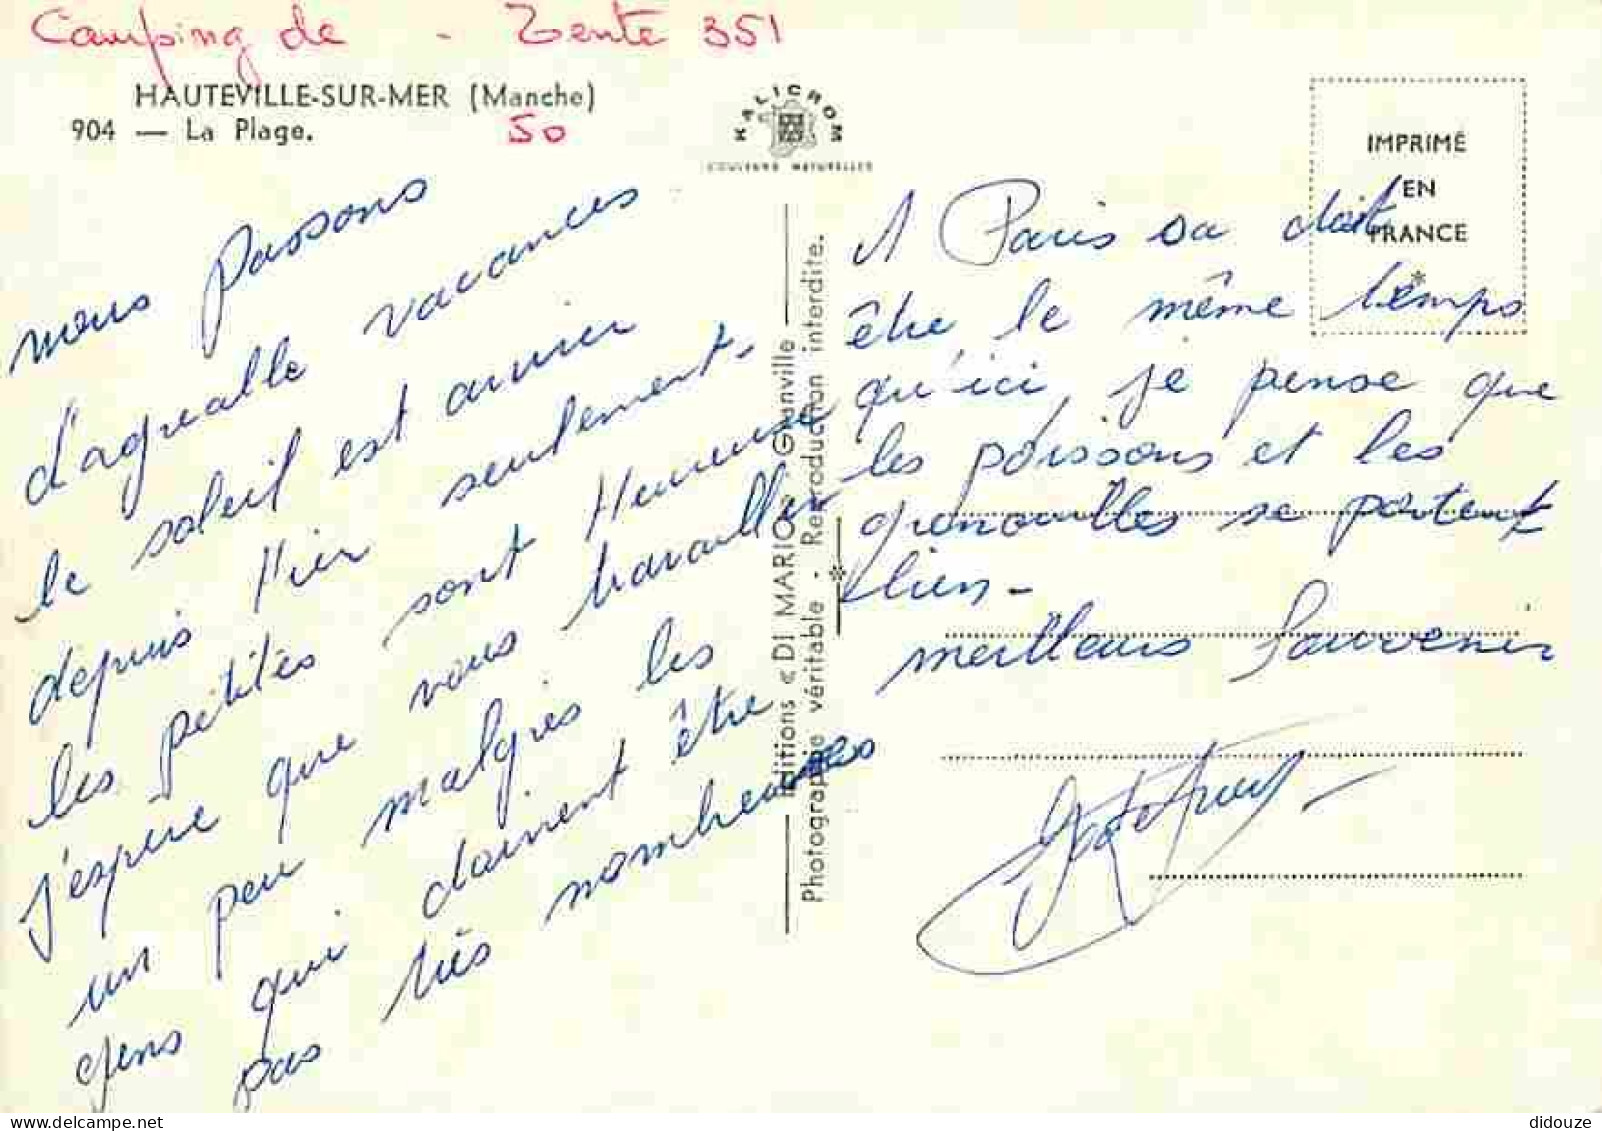 Camping de - Tente 351
HAUTEVILLE-SUR-MER (Manche)
904 — La Plage.
50
KALICROM
COULEURS NATURELLES
IMPRIMÉ
EN
FRANCE
*
nous passons
d'agreable vacances
le soleil est arriver
depuis Hier seulement.
les petités sont Heureuse
j'espère que vous travailler
un peu malgrès les
gens qui doivent être
pas très nombreuses
Editions « DI MARIO » Granville
Photographie véritable. - Reproduction interdite.
A Paris sa doit
être le même temps
qu'ici, je pense que
les poissons et les
grenouilles se portent
bien -
meilleurs Souvenir
didouze www.delcampe.net